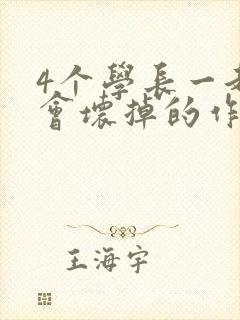 4个學長一
會壞掉的作
王海宇